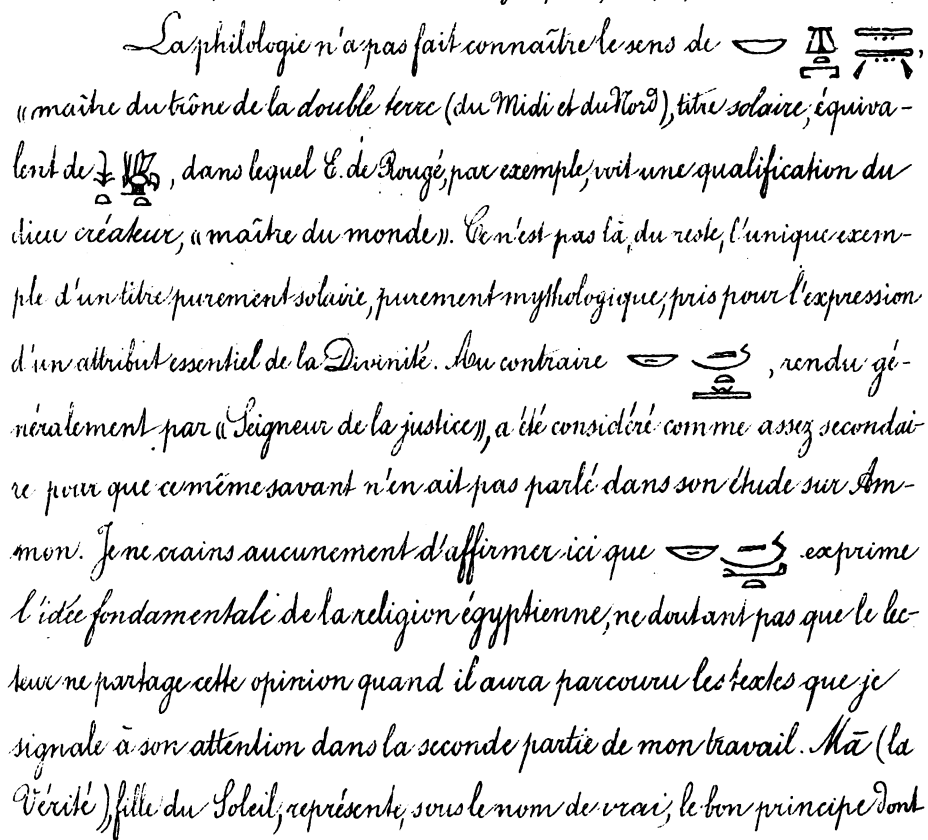 La philologie n'a pas fait connaître le sens de 𓎟 𓎟,
«maître du trône de la double terre (du Midi et du Nord), titre solaire, équiva-
lent de , dans lequel E. de Rougé, par exemple, voit une qualification du
dieu créateur, «maître du monde». Ce n'est pas là, du reste, l'unique exem-
ple d'un titre purement solaire, purement mythologique, pris pour l'expression
d'un attribut essentiel de la Divinité. Au contraire , rendu gé-
néralement par «Seigneur de la justice», a été considéré comme assez secondai-
re pour que ce même savant n'en ait pas parlé dans son étude sur Am-
mon. Je ne crains aucunement d'affirmer ici que exprime
l'idée fondamentale de la religion égyptienne, ne doutant pas que le lec-
teur ne partage cette opinion quand il aura parcouru les textes que je
signale à son attention dans la seconde partie de mon travail. Mā (la
Vérité), fille du Soleil, représente, sous le nom de vrai, le bon principe dont